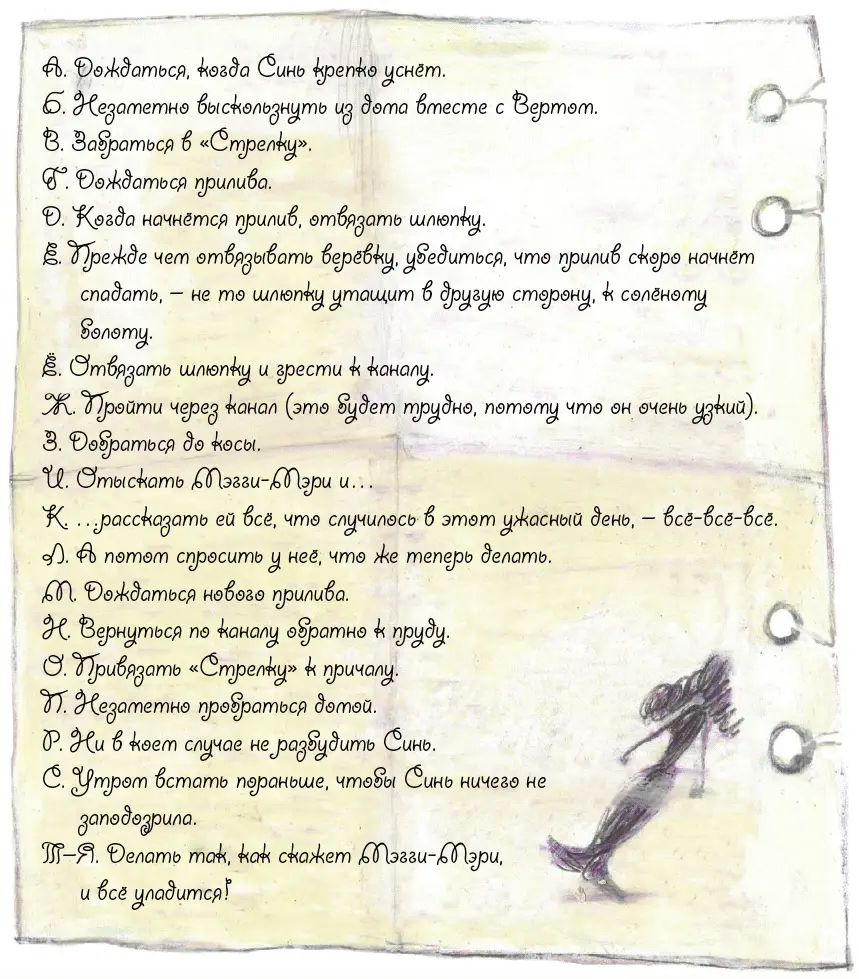 А. Дождаться, когда Синь крепко уснёт.
Б. Незаметно выскользнуть из дома вместе с Вертом.
В. Забраться в «Стрелку».
Г. Дождаться прилива.
Д. Когда начнётся прилив, отвязать шлюпку.
Е. Прежде чем отвязывать верёвку, убедиться, что прилив скоро начнёт
спадать, — не то шлюпку утащит в другую сторону, к солёному
болоту.
Ё. Отвязать шлюпку и грести к каналу.
Ж. Пройти через канал (это будет трудно, потому что он очень узкий).
З. Добраться до косы.
И. Отыскать Мэгги-Мэри и...
К. ...рассказать ей всё, что случилось в этот ужасный день, — всё-всё-всё.
Л. А потом спросить у неё, что же теперь делать.
М. Дождаться нового прилива.
Н. Вернуться по каналу обратно к пруду.
О. Привязать «Стрелку» к причалу.
П. Незаметно пробраться домой.
Р. Ни в коем случае не разбудить Синь.
С. Утром встать пораньше, чтобы Синь ничего не
заподозрила.
Т—Я. Делать так, как скажет Мэгги-Мэри,
и всё уладится!